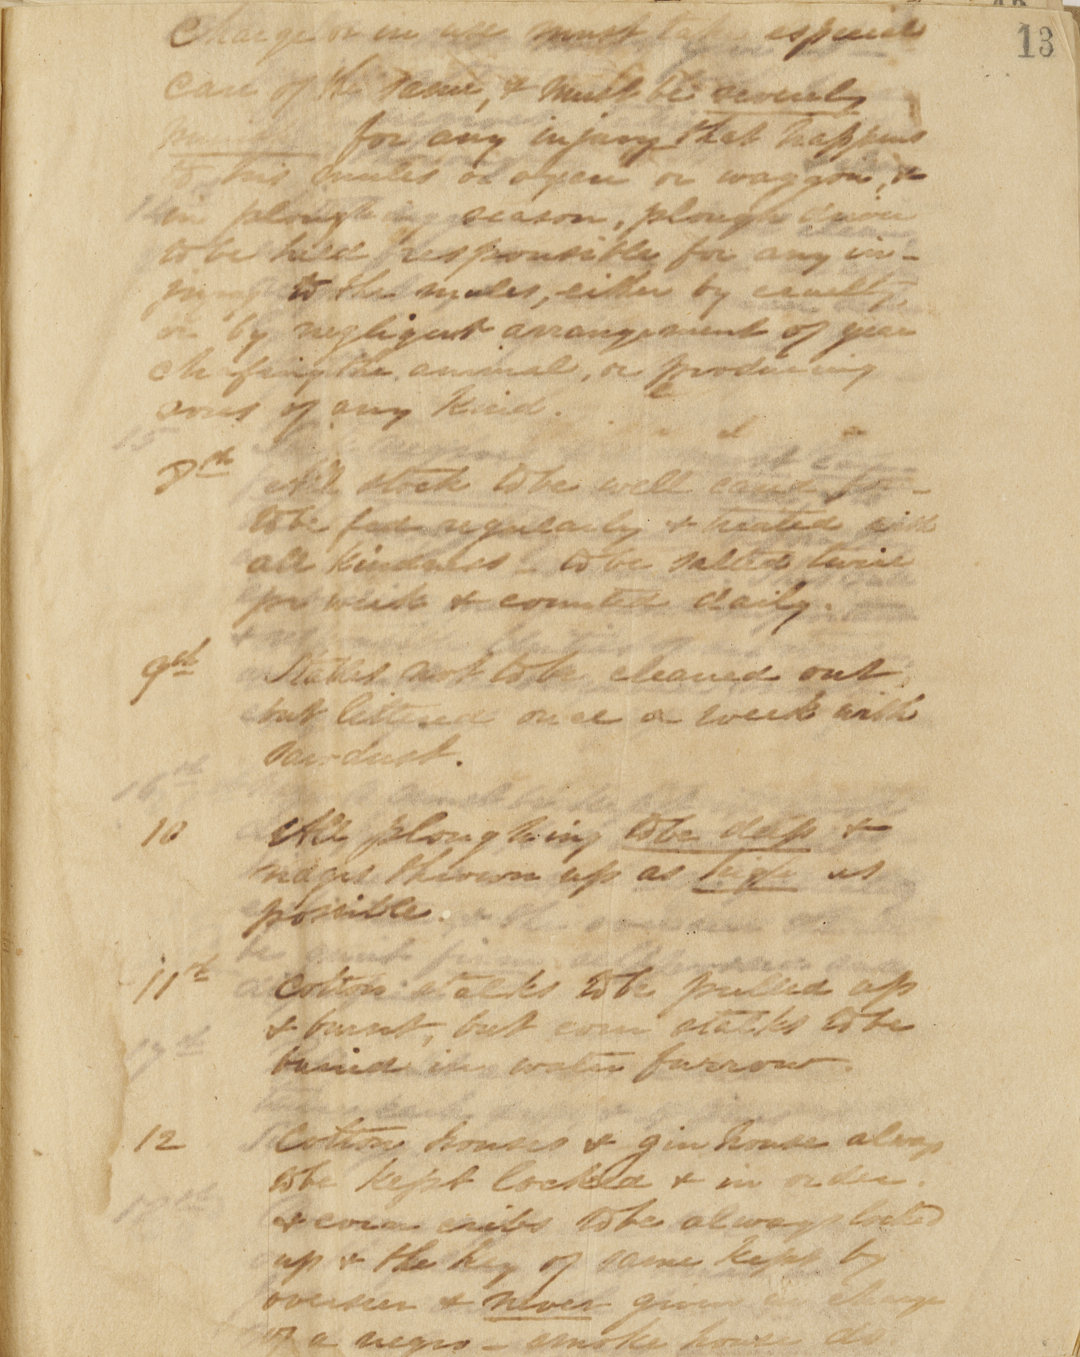 13
charge or in use must take especial
care of the same, & must be severely
for any injury that happens
to his mules or oxen or waggon, &
in ploughing season, plough driver
to be held responsible for any in-
jury to the mules, either by cruelty
or by negligent arrangement of gear
chafing the animal, or producing
sores of any kind.
8th All stock to be well cared for -
to be fed regularly & treated with
all kindness - to be salted twice
per week & counted daily.
9th Stables not to be cleaned out,
but littered once a week with
sawdust.
10 All ploughing to be deep &
ridges thrown up as high as
possible.
11th Cotton stalks to be pulled up
& burnt, but corn stalks to be
buried in water furrow.
12 Cotton houses & gin house always
to be kept locked & in order.
& corn cribs to be always locked
up & the key of same kept by
overseer & never given in charge
of a negro - smoke house do